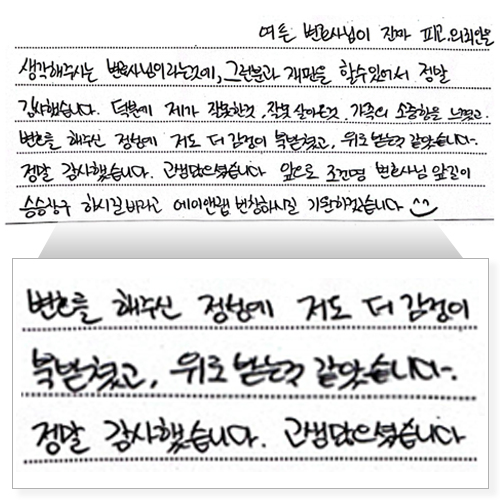 여튼 변호사님이 진짜 피고.의뢰인을
생각해주시는 변호사님이라는것에, 그런분과 재판을 할수있어서 정말
감사했습니다. 덕분에 제가 잘못한것, 잘못 살아온것, 가족의 소중함을 느꼈고.
변호를 해주신 정성에 저도 더 감정이 북받쳤고, 위로 받는것 같았습니다.
정말 감사했습니다. 고생많으셨습니다 앞으로 조건명 변호사님 앞길이
승승장구 하시길 바라고 에이앤랩 번창하시길 기원하겠습니다 ^^
변호를 해주신 정성에 저도 더 감정이
북받쳤고, 위로 받는것 같았습니다.
정말 감사했습니다. 고생많으셨습니다